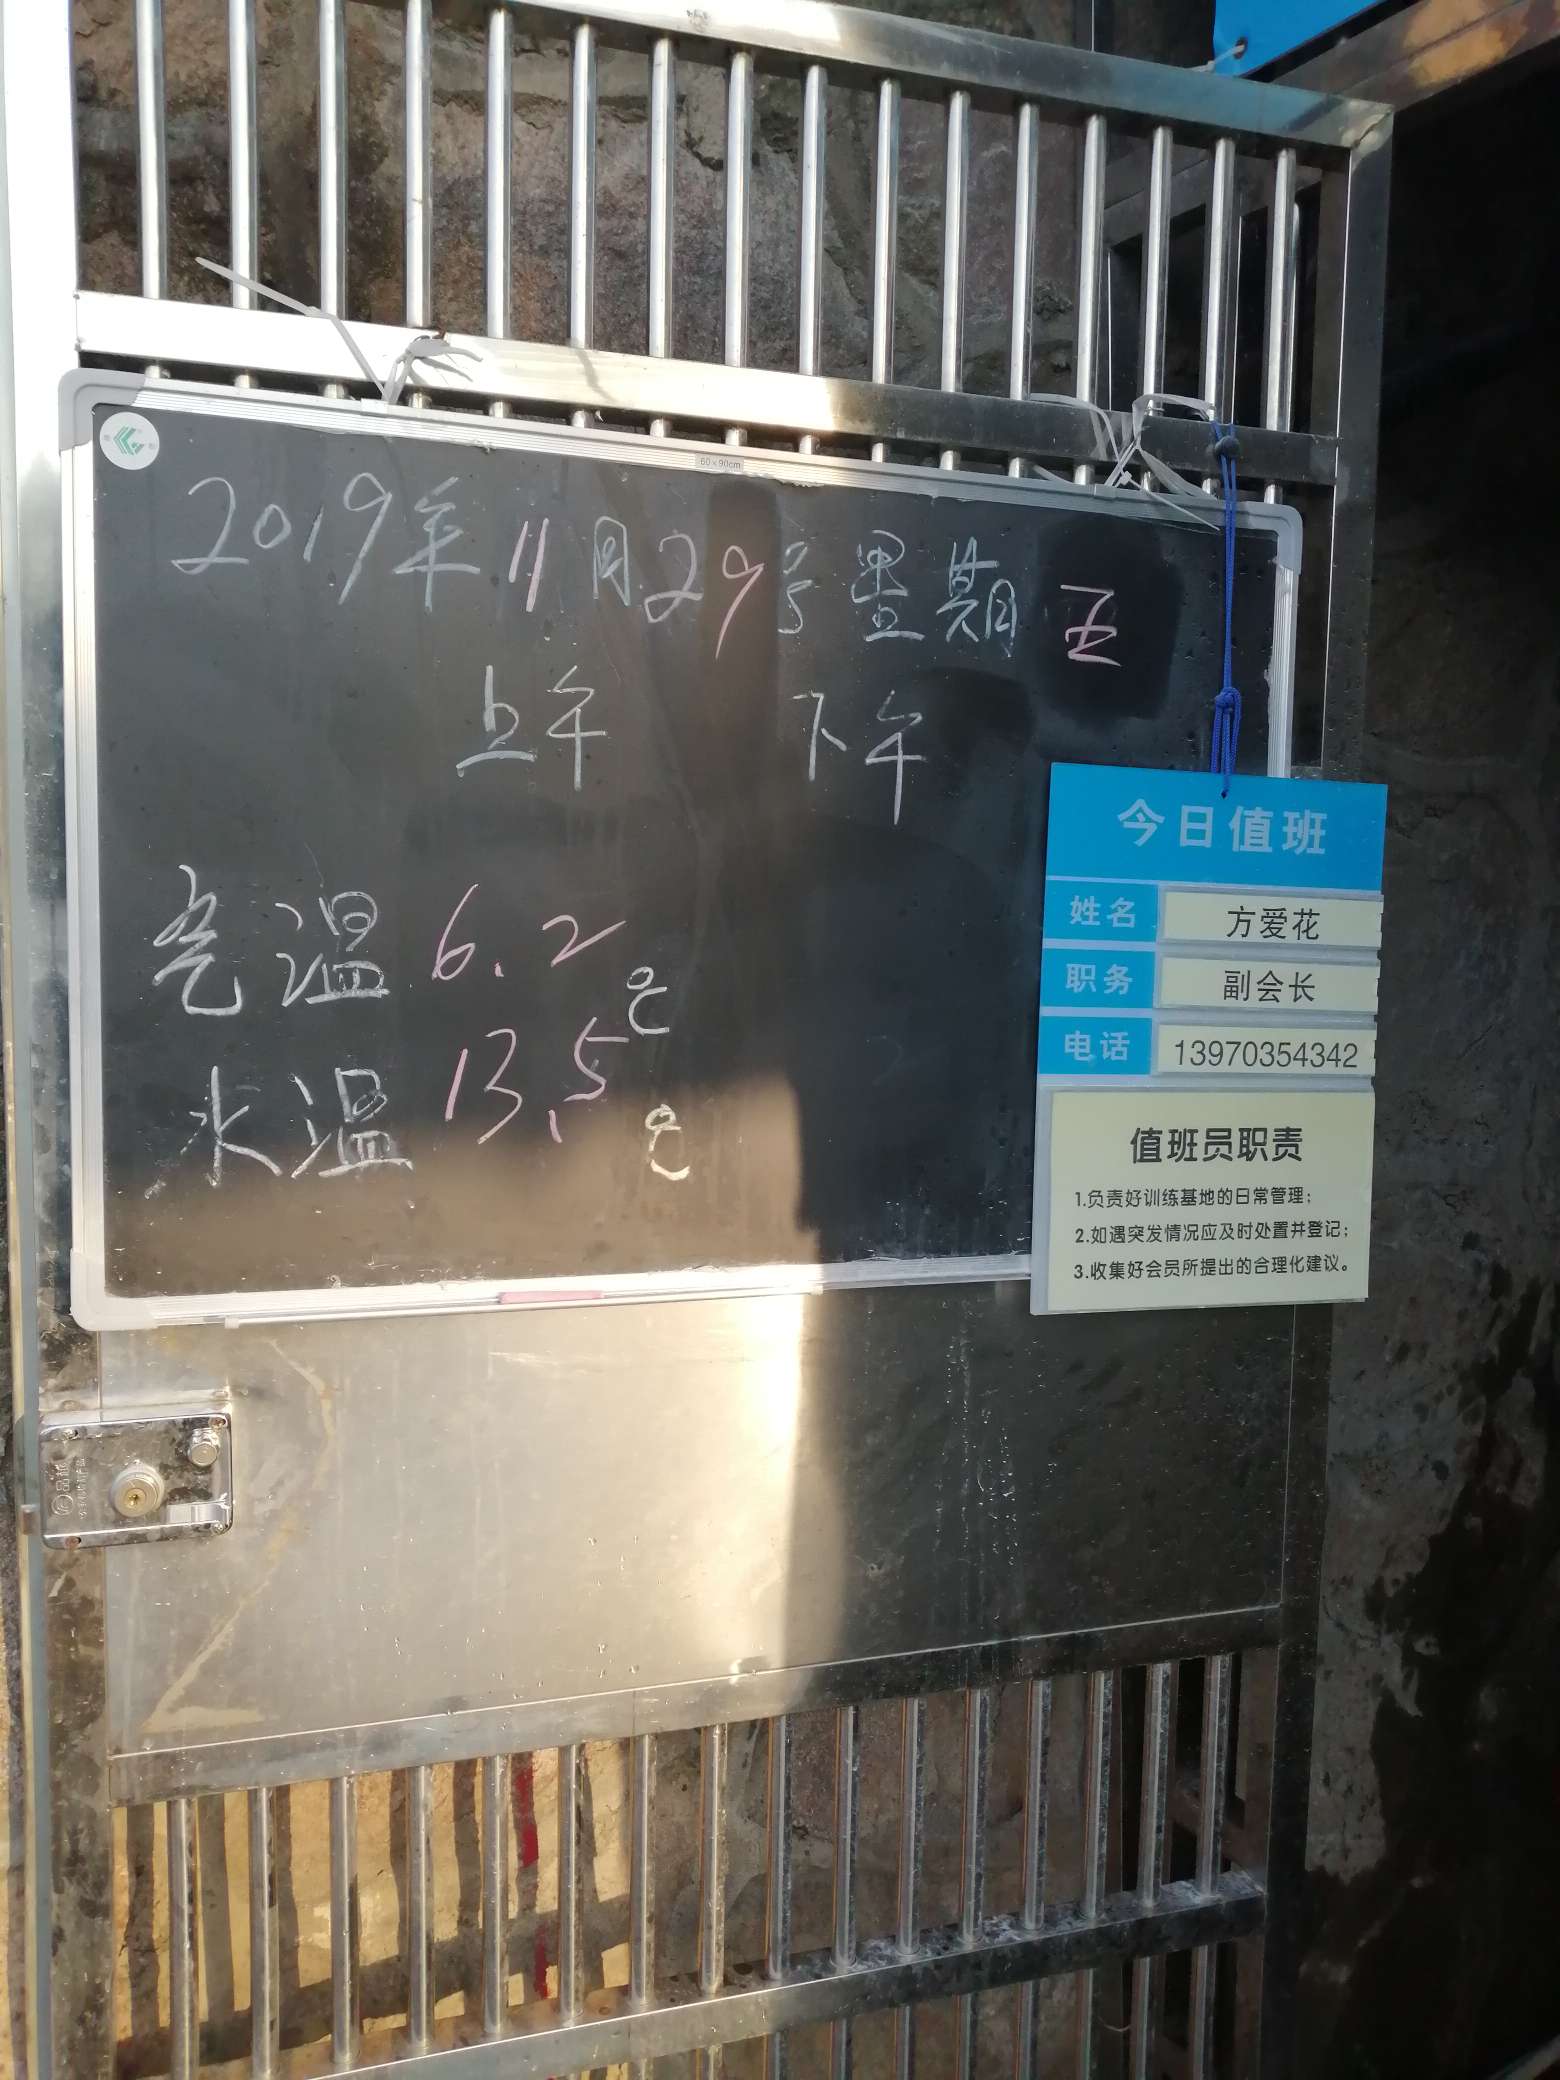 60×90cm
2019年11月29号星期五
上午 下午
气温 6.2 ℃
水温 13.5 ℃
今日值班
姓名 方爱花
职务 副会长
电话 13970354342
值班员职责
1.负责好训练基地的日常管理;
2.如遇突发情况应及时处置并登记;
3.收集好会员所提出的合理化建议。